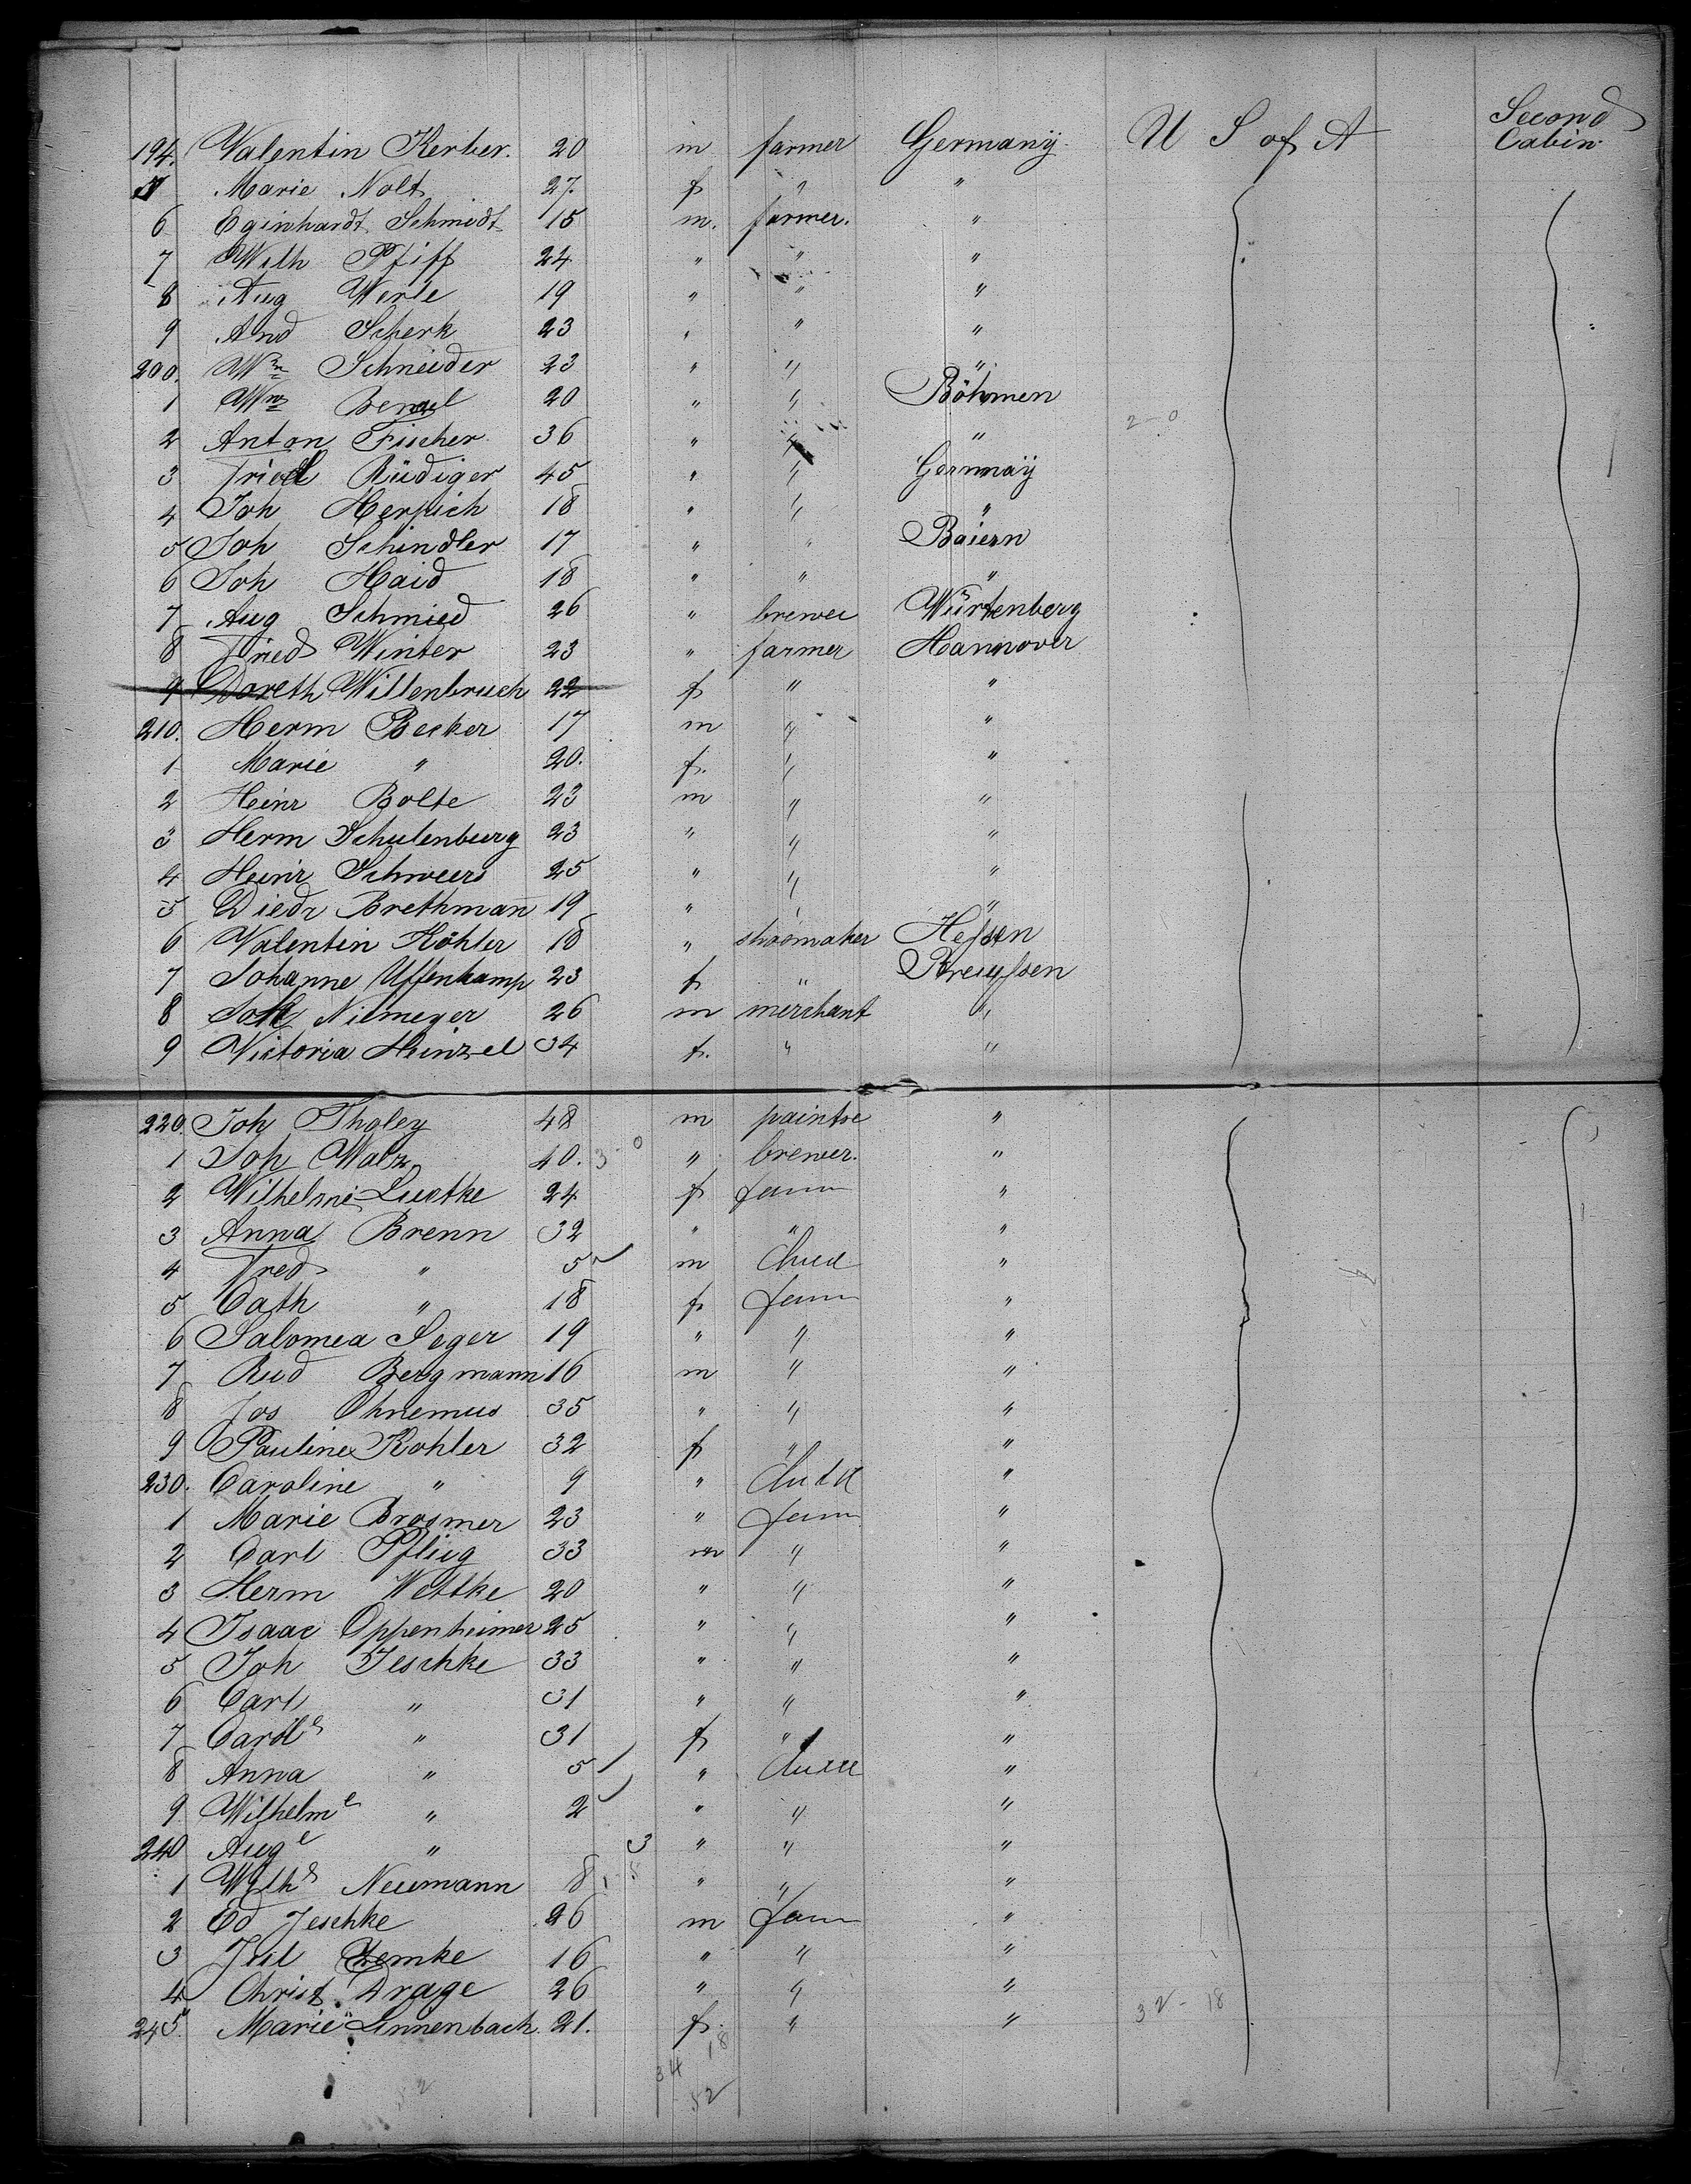 Second
194. Valentin Kerber. 20 m farmer Germany U S of A Cabin.
5 Marie Nolt 27. f " "
6 Eginhardt Schmidt 15 m. farmer. "
7 Wilh Pfiff 24 " " "
8 Aug Werle 19 " " "
9 And Scherk 23 " " "
200. Wm Schneider 23 " " "
1 Wm 20 " " Böhmen
2 Anton Fischer 36 " " " 2-0
3 Fried Rüdiger 45 " " Germnaÿ
4 Joh Herpich 18 " " "
5 Joh Schindler 17 " " Baiern
6 Joh Haid 18 " " "
7 Aug Schmied 26 " brewer Würtenberg
8 Fried Winter 23 " farmer Hannover
9 Doreth Willenbruch 22 f " "
210. Herm Becker 17 m " "
1 Marie " 20. f. " "
2 Heinr Bolte 23 m " "
3 Herm Schulenburg 23 " " "
4 Heinr Schweers 25 " " "
5 Diedr Brethmann 19 " " "
6 Valentin Köhler 18 " shoemaker Hessen
7 Johanne Uffenkamp 23 f " Preussen
8 Niemeyer 26 m merchant "
9 Victoria Heinzel 34 f. " "
220. Joh Tholey 48 m "
1 Joh Walz 40. 3-0 " brewer. "
2 Wilhelmi Luetke 24 f farm "
3 Anna Brenn 32 " " "
4 Fred " 5 m Child "
5 Cath " 18 f farm "
6 Salomea Seger 19 " " "
7 Rud Bergmann 16 m " "
8 Jos Ohnemus 35 " " "
9 Pauline Kohler 32 f " "
230. Caroline " 9 " Child "
1 Marie Brosmer 23 " farm "
2 Carl Pflieg 33 m " "
3 Herm Wettke 20 " " "
4 Isaac Oppenheimer 25 " " "
5 Joh Jeschke 33 " " "
6 Carl " 31 " " "
7 Carole " 31 f " "
8 Anna " 5 " Child "
9 Wilhelme " 2 " " "
240 Auge " 3 " " "
1 Wilhe Neumann 8 " " "
2 Ed Jeschke 26 m farm "
3 Jul Zemke 16 " " "
4 Christ Drage 26 " " "
245. Marie Linnenbach. 21. f. " " 32-18
34 18
52 52